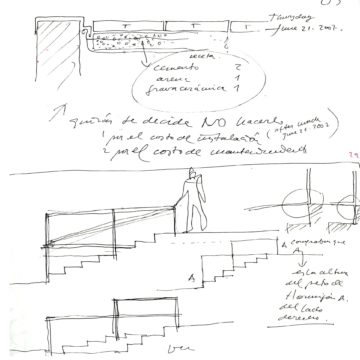 T T T
Thursday
June 21. 2007.
receta
cemento 2
arena 1
grava cerámica 1
quizás se decide NO hacerlo
1 por el costo de instalación
2 por el costo de mantenimiento
(after lunch
June 21. 2007)
A comprobar que
A
es la altura
del peto de
Hormigón A.
del lado
derecho.
A